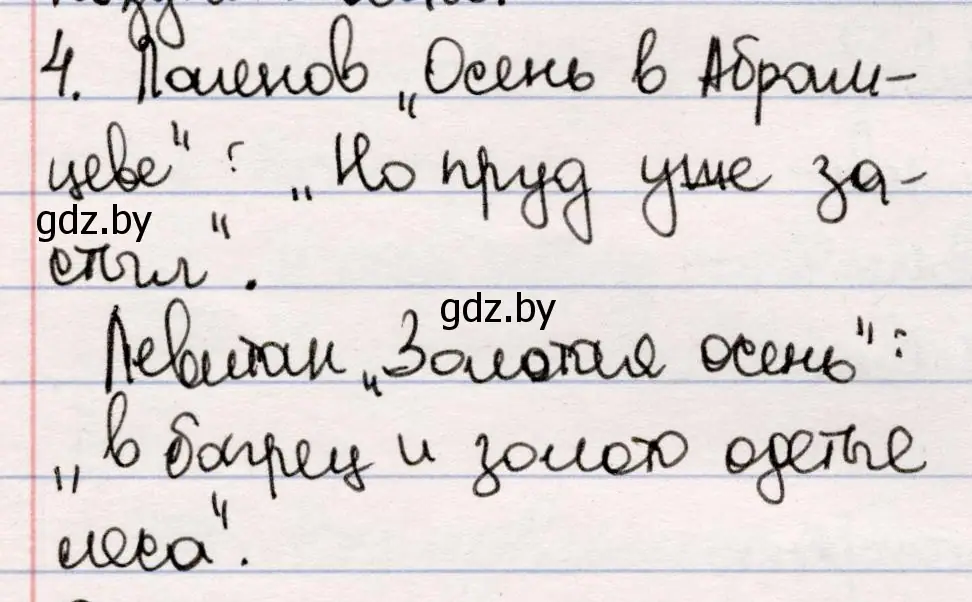 4. Поленов „Осень в Абрам-
цеве“: „Но пруд уже за-
gdz.by
стыл“.
gdz.by
Левитан „Золотая осень“:
„в багрец и золото одетые
леса“.